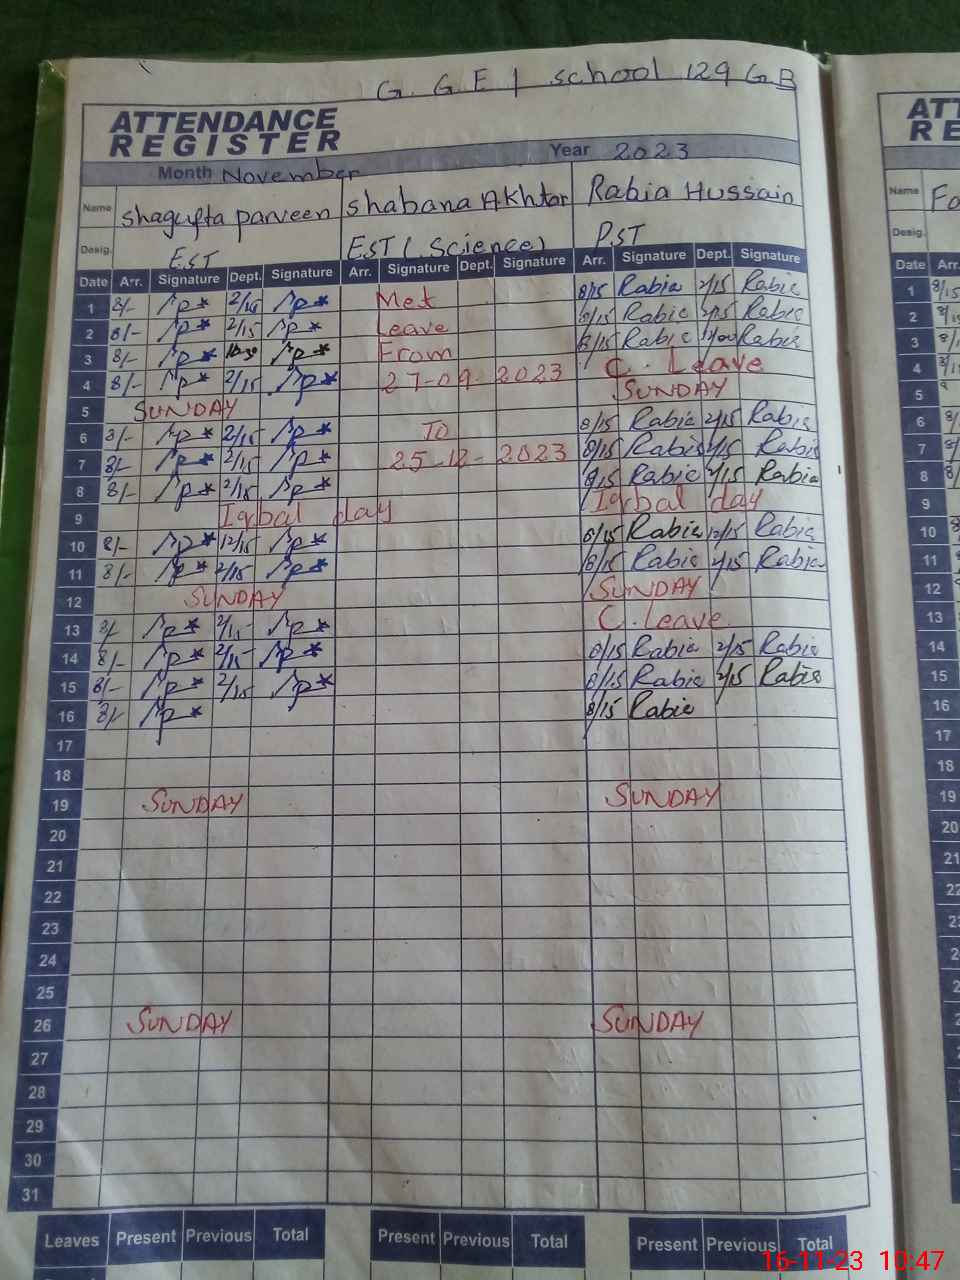 G. G. E / school 129 GB
ATTENDANCE
REGISTER
Month November Year 2023
Name Shagufta Parveen Shabana Akhtar Rabia Hussain
Desig. EST EST (Science) PST
Date Arr. Signature Dept. Signature Arr. Signature Dept. Signature Arr. Signature Dept. Signature
1 8/- 2/15 Met 8/15 Rabia 2/15 Rabia
2 8/- 2/15 Leave 8/15 Rabia 2/15 Rabia
3 8/- From 8/15 Rabia Rabia
4 8/- 2/15 27-09-2023 C. Leave
5 SUNDAY SUNDAY
6 8/- 2/15 To 8/15 Rabia 2/15 Rabia
7 8/- 2/15 25-12-2023 8/15 Rabia 2/15 Rabia
8 8/- 2/15 8/15 Rabia 2/15 Rabia
9 Iqbal day Iqbal day
10 8/- 12/15 8/15 Rabia 12/15 Rabia
11 8/- 2/15 8/15 Rabia 2/15 Rabia
12 SUNDAY SUNDAY
13 8/- 2/15 C. Leave
14 8/- 2/15 8/15 Rabia 2/15 Rabia
15 8/- 2/15 8/15 Rabia 2/15 Rabia
16 8/- 8/15 Rabia
17
18
19 SUNDAY SUNDAY
20
21
22
23
24
25
26 SUNDAY SUNDAY
27
28
29
30
31
Leaves Present Previous Total Present Previous Total Present Previous Total
Name
Desig.
Date Arr.
1 8/15
2
3
4
5
6
7
8
9
10
11
12
13
14
15
16
17
18
19
20
16-11-23 10:47